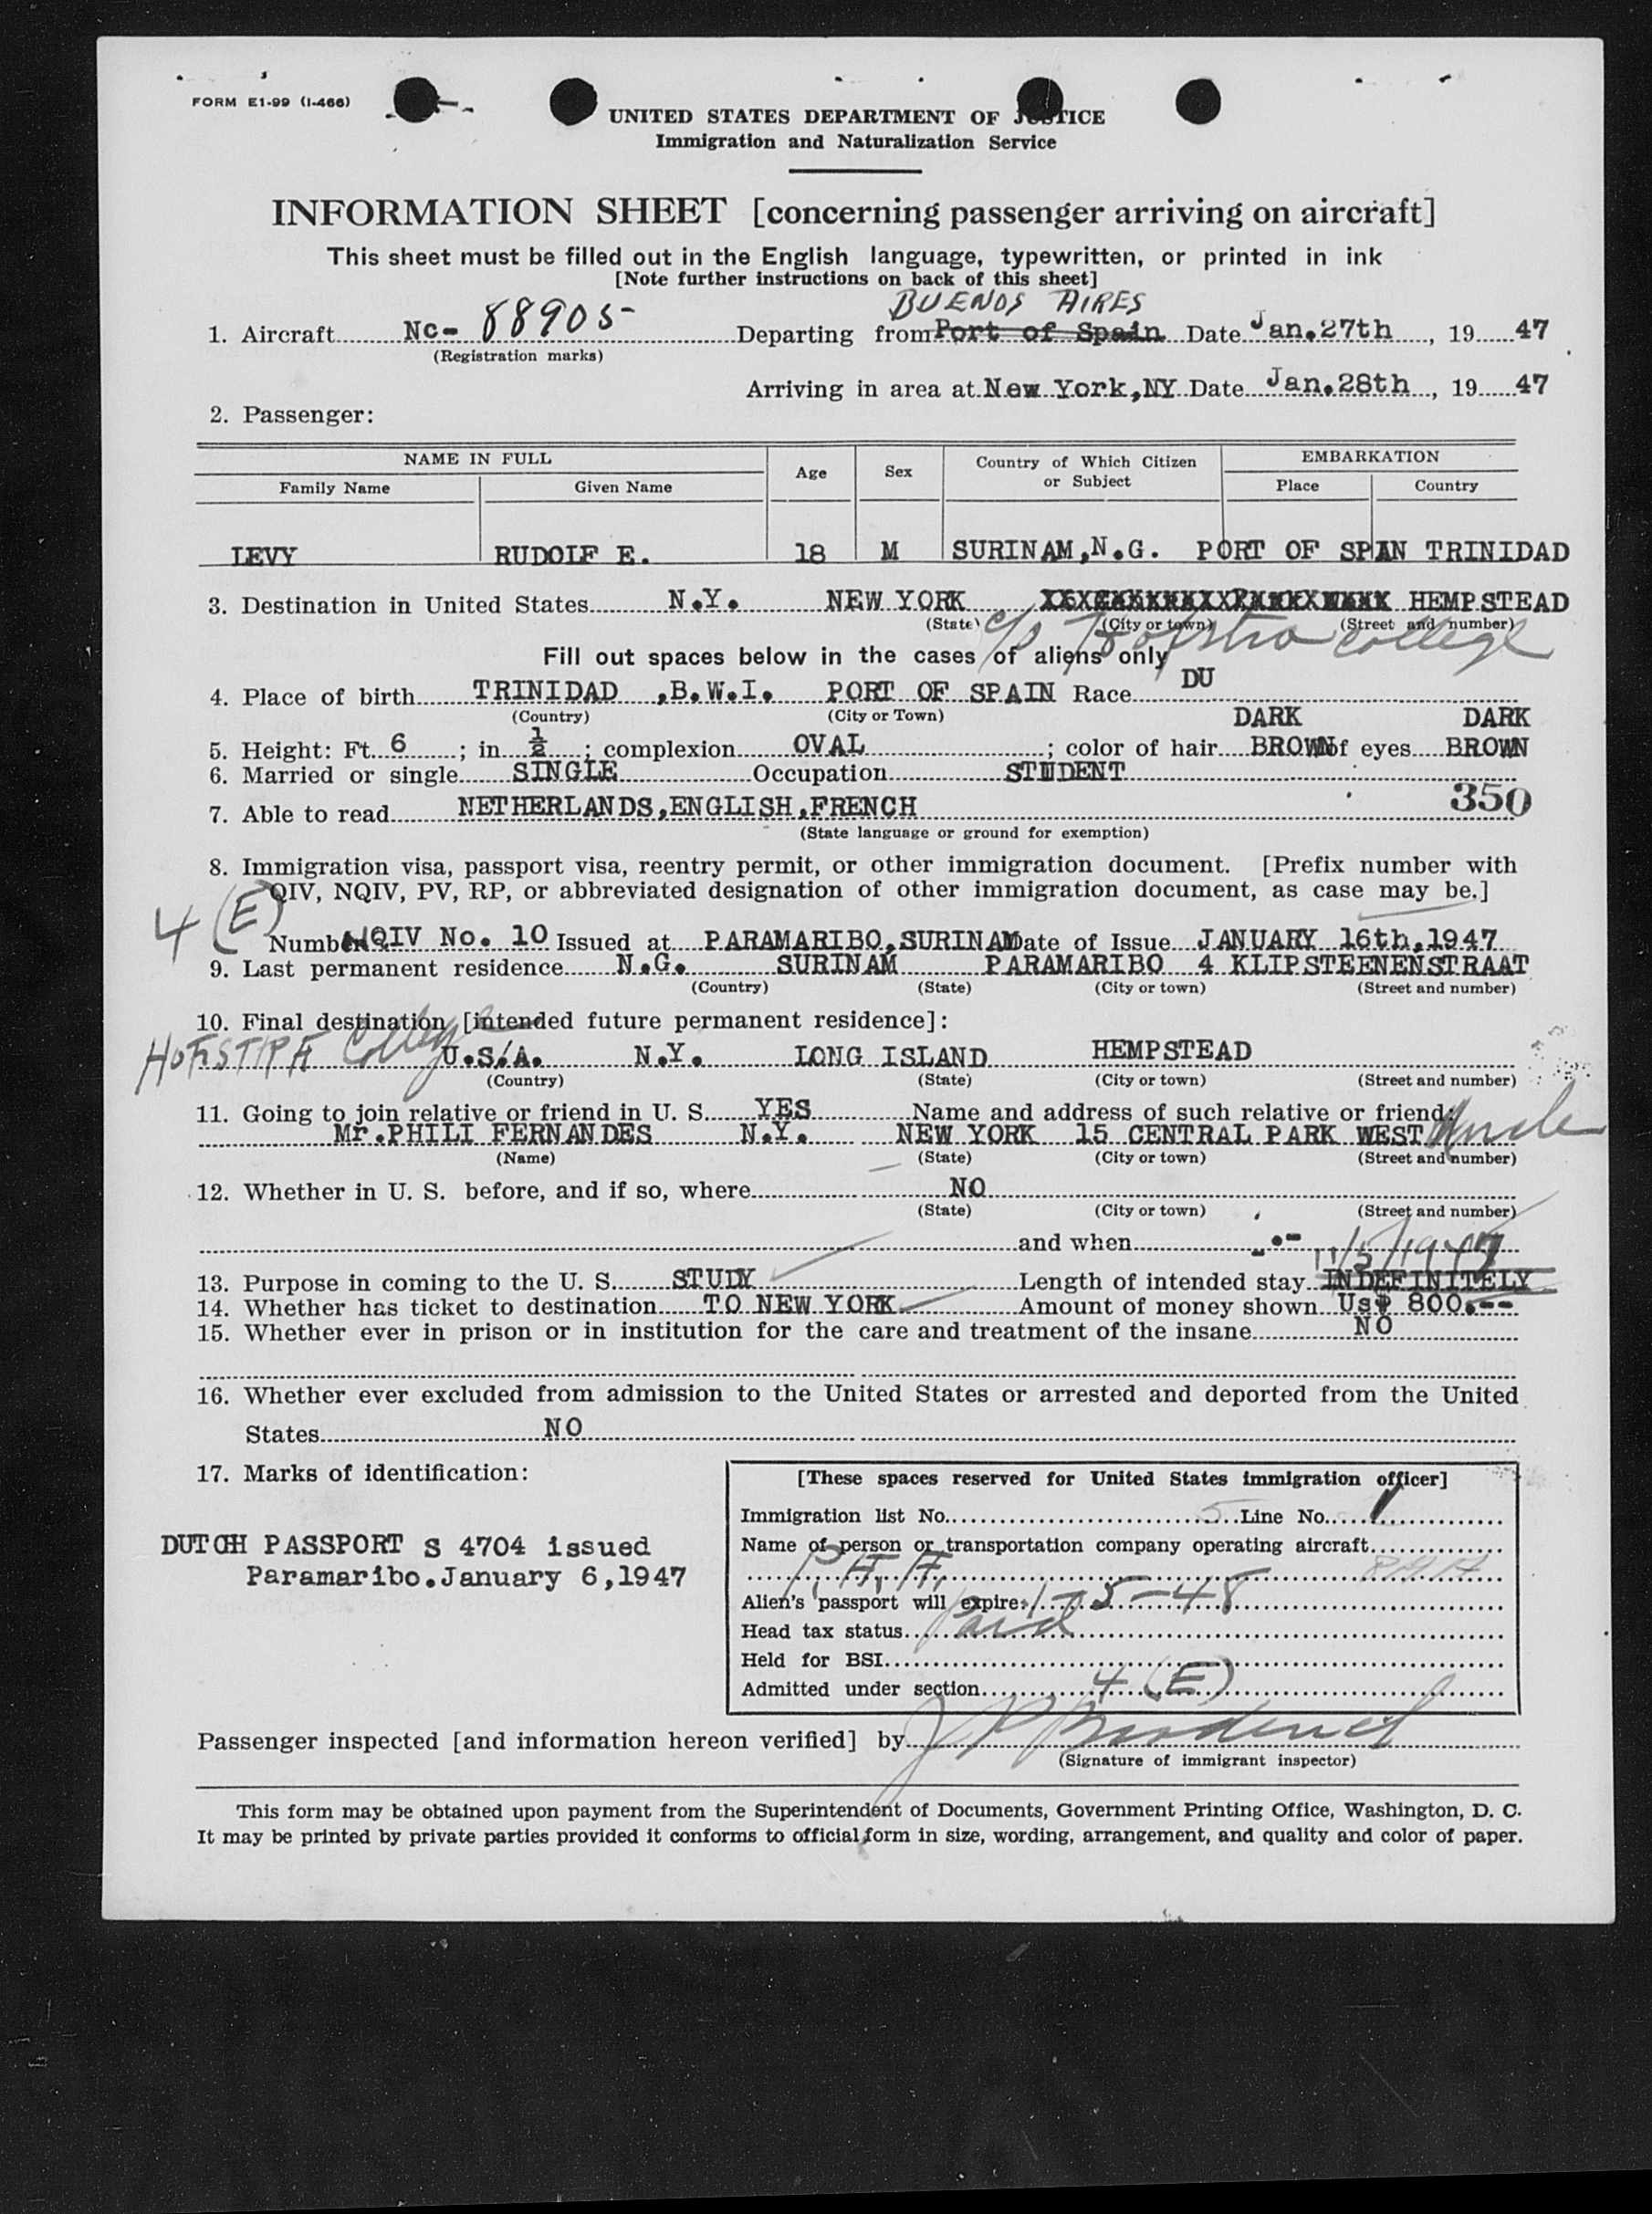 FORM E1-99 (I-466)
UNITED STATES DEPARTMENT OF JUSTICE
Immigration and Naturalization Service
INFORMATION SHEET [concerning passenger arriving on aircraft]
This sheet must be filled out in the English language, typewritten, or printed in ink
[Note further instructions on back of this sheet]
BUENOS AIRES
1. Aircraft Nc- 88905 Departing from Port of Spain Date Jan.27th, 19 47
(Registration marks)
Arriving in area at New York,NY Date Jan.28th, 19 47
2. Passenger:
NAME IN FULL Age Sex Country of Which Citizen or Subject EMBARKATION
Family Name Given Name Place Country
LEVY RUDOLF E. 18 M SURINAM,N.G. PORT OF SPAIN TRINIDAD
3. Destination in United States N.Y. NEW YORK HEMPSTEAD
(State) (City or town) (Street and number)
c/o Hofstra College
Fill out spaces below in the cases of aliens only
4. Place of birth TRINIDAD ,B.W.I. PORT OF SPAIN Race DU
(Country) (City or Town) DARK DARK
5. Height: Ft. 6 ; in. ½ ; complexion OVAL ; color of hair BROWN of eyes BROWN
6. Married or single SINGLE Occupation STUDENT
7. Able to read NETHERLANDS,ENGLISH,FRENCH 350
(State language or ground for exemption)
8. Immigration visa, passport visa, reentry permit, or other immigration document. [Prefix number with
QIV, NQIV, PV, RP, or abbreviated designation of other immigration document, as case may be.]
4 (E)
Number NQIV No. 10 Issued at PARAMARIBO,SURINAM Date of Issue JANUARY 16th,1947
9. Last permanent residence N.G. SURINAM PARAMARIBO 4 KLIPSTEENENSTRAAT
(Country) (State) (City or town) (Street and number)
10. Final destination [intended future permanent residence]:
HOFSTRA College U.S.A. N.Y. LONG ISLAND HEMPSTEAD
(Country) (State) (City or town) (Street and number)
11. Going to join relative or friend in U. S. YES Name and address of such relative or friend:
Mr.PHILI FERNANDES N.Y. NEW YORK 15 CENTRAL PARK WEST Uncle
(Name) (State) (City or town) (Street and number)
12. Whether in U. S. before, and if so, where NO
(State) (City or town) (Street and number)
and when -.- 11/5/1947
13. Purpose in coming to the U. S. STUDY Length of intended stay INDEFINITELY
14. Whether has ticket to destination TO NEW YORK Amount of money shown Us$ 800.--
15. Whether ever in prison or in institution for the care and treatment of the insane NO
16. Whether ever excluded from admission to the United States or arrested and deported from the United
States NO
17. Marks of identification:
DUTCH PASSPORT S 4704 issued
Paramaribo.January 6,1947
[These spaces reserved for United States immigration officer]
Immigration list No. 5 Line No. 1
Name of person or transportation company operating aircraft
P.A.A. PAA
Alien's passport will expire 1-5-48
Head tax status Paid
Held for BSI
Admitted under section 4 (E)
Passenger inspected [and information hereon verified] by
(Signature of immigrant inspector)
This form may be obtained upon payment from the Superintendent of Documents, Government Printing Office, Washington, D. C.
It may be printed by private parties provided it conforms to official form in size, wording, arrangement, and quality and color of paper.